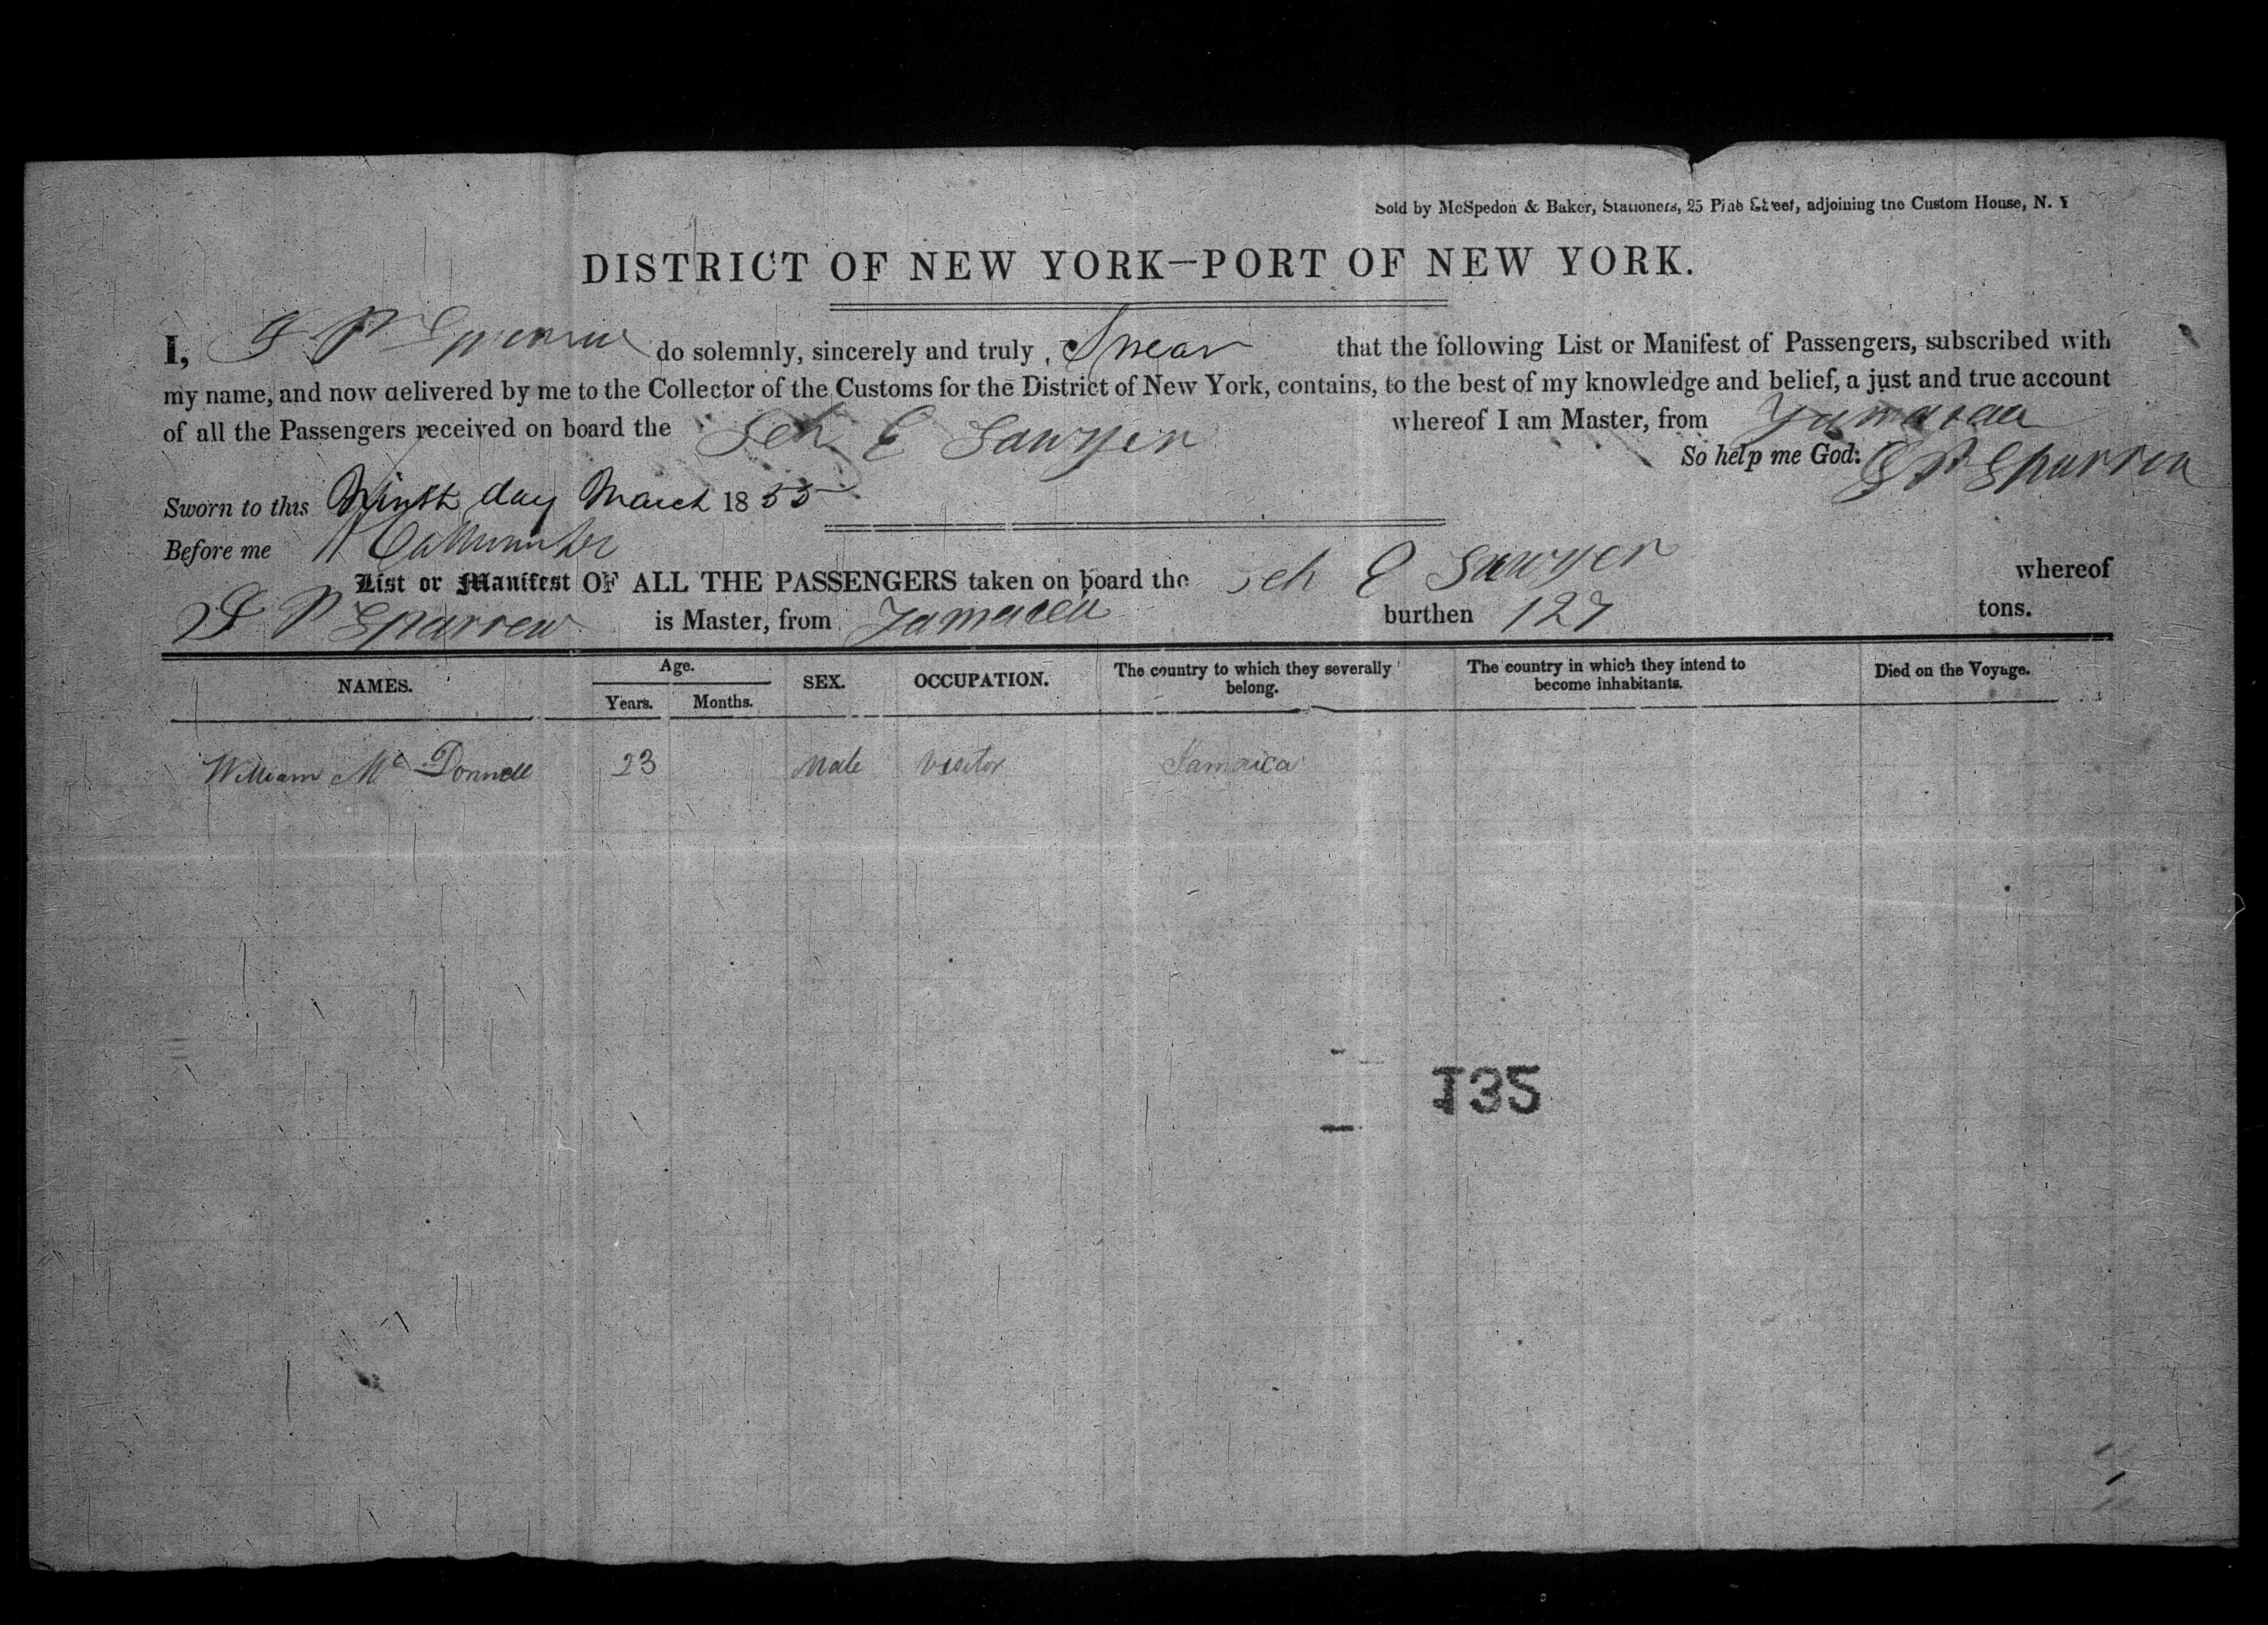 Sold by McSpedon & Baker, Stationers, 25 Pine Street, adjoining the Custom House, N. Y
DISTRICT OF NEW YORK—PORT OF NEW YORK.
I, do solemnly, sincerely and truly, Swear that the following List or Manifest of Passengers, subscribed with
my name, and now delivered by me to the Collector of the Customs for the District of New York, contains, to the best of my knowledge and belief, a just and true account
of all the Passengers received on board the Sch E Sawyer whereof I am Master, from Jamacaa
So help me God: P Sparrow
Sworn to this Ninth day March 1855
Before me
List or Manifest OF ALL THE PASSENGERS taken on board the Sch E Sawyer whereof
P Sparrow is Master, from Jamacea burthen 127 tons.
NAMES. Age. SEX. OCCUPATION. The country to which they severally belong. The country in which they intend to become inhabitants. Died on the Voyage.
Years. Months.
William Mc Donnell 23 Male Visitor Jamaica
135